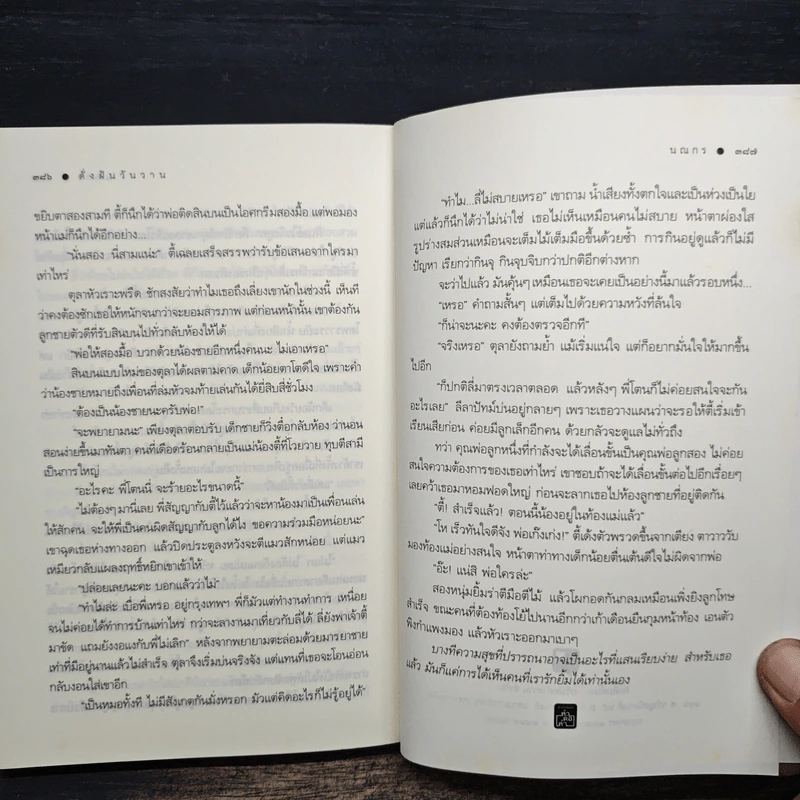 ๓๘๖ ● ดั่งฝันวันวาน
ขยิบตาสองสามที ตี้ก็นึกได้ว่าพ่อติดสินบนเป็นไอศกรีมสองมื้อ แต่พอมอง
หน้าแม่ก็นึกได้อีกอย่าง...
“นั่นสอง นี่สามแน่ะ” ตี้เฉลยเสร็จสรรพว่ารับข้อเสนอจากใครมา
เท่าไหร่
ตุลาหัวเราะพรืด ชักสงสัยว่าทำไมเธอถึงเลี่ยงเขานักในช่วงนี้ เห็นที
ว่าคงต้องซักเธอให้หนักจนกว่าจะยอมสารภาพ แต่ก่อนหน้านั้น เขาต้องกัน
ลูกชายตัวดีที่รับสินบนไปทั่วกลับห้องให้ได้
“พ่อให้สองมื้อ บวกด้วยน้องชายอีกหนึ่งคนนะ ไม่เอาเหรอ”
สินบนแบบใหม่ของตุลาได้ผลตามคาด เด็กน้อยตาโตดีใจ เพราะคำ
ว่าน้องชายหมายถึงเพื่อนที่ล้มหัวจมท้ายเล่นกันได้ยี่สิบสี่ชั่วโมง
“ต้องเป็นน้องชายนะครับพ่อ!”
“จะพยายามนะ” เพียงตุลาตอบรับ เด็กชายก็วิ่งตื๋อกลับห้อง ว่านอน
สอนง่ายขึ้นมาทันตา คนที่เดือดร้อนกลายเป็นแม่น้องตี้ที่โวยวาย ทุบตีสามี
เป็นการใหญ่
“อะไรคะ พี่โตนนี่ จะร้ายอะไรขนาดนี้”
“ไม่ต้องๆ มานี่เลย พี่สัญญากับตี้ไว้แล้วว่าจะหาน้องมาเป็นเพื่อนเล่น
ให้สักคน จะให้พี่เป็นคนผิดสัญญากับลูกได้ไง ขอความร่วมมือหน่อยนะ”
เขาฉุดเธอห่างทางออก แล้วปิดประตูลงหวังจะตีแมวสักหน่อย แต่แมว
เหมียวกลับแผลงฤทธิ์หยิกเขาเข้าให้
“ปล่อยเลยนะคะ บอกแล้วว่าไม่”
“ทำไมล่ะ เบื่อพี่เหรอ อยู่กรุงเทพฯ พี่ก็มัวแต่ทำงานทำการ เหนื่อย
จนไม่ค่อยได้ทำการบ้านเท่าไหร่ กว่าจะลางานมาเที่ยวกับลี่ได้ ลี่ยังพาเจ้าตี้
มาขัด แถมยังงอแงกับพี่ไม่เลิก” หลังจากพยายามตะล่อมด้วยมารยาชาย
เท่าที่มีอยู่นานแล้วไม่สำเร็จ ตุลาจึงเริ่มบ่นจริงจัง แต่แทนที่เธอจะโอนอ่อน
กลับงอนใส่เขาอีก
“เป็นหมอทั้งที ไม่มีสังเกตกันมั่งหรอก มัวแต่คิดอะไรก็ไม่รู้อยู่ได้”
นณกร ● ๓๘๗
“ทำไม...ลี่ไม่สบายเหรอ” เขาถาม น้ำเสียงทั้งตกใจและเป็นห่วงเป็นใย
แต่แล้วก็นึกได้ว่าไม่น่าใช่ เธอไม่เห็นเหมือนคนไม่สบาย หน้าตาผ่องใส
รูปร่างสมส่วนเหมือนจะเต็มไม้เต็มมือขึ้นด้วยซ้ำ การกินอยู่ดูแล้วก็ไม่มี
ปัญหา เรียกว่ากินจุ กินจุบจิบกว่าปกติอีกต่างหาก
จะว่าไปแล้ว มันคุ้นๆ เหมือนเธอจะเคยเป็นอย่างนี้มาแล้วรอบหนึ่ง...
“เหรอ” คำถามสั้นๆ แต่เต็มไปด้วยความหวังที่ล้นใจ
“ก็น่าจะนะคะ คงต้องตรวจอีกที”
“จริงเหรอ” ตุลายังถามย้ำ แม้เริ่มแน่ใจ แต่ก็อยากมั่นใจให้มากขึ้น
ไปอีก
“ก็ปกติลี่มาตรงเวลาตลอด แล้วหลังๆ พี่โตนก็ไม่ค่อยสนใจจะกัน
อะไรเลย” ลีลาปัทม์บ่นอยู่กลายๆ เพราะเธอวางแผนว่าจะรอให้ตี้เริ่มเข้า
เรียนเสียก่อน ค่อยมีลูกเล็กอีกคน ด้วยกลัวจะดูแลไม่ทั่วถึง
ทว่า คุณพ่อลูกหนึ่งที่กำลังจะได้เลื่อนขั้นเป็นคุณพ่อลูกสอง ไม่ค่อย
สนใจความต้องการของเธอเท่าไหร่ เขาชอบถ้าจะได้เลื่อนขั้นต่อไปอีกเรื่อยๆ
เลยคว้าเธอมาหอมฟอดใหญ่ ก่อนจะลากเธอไปห้องลูกชายที่อยู่ติดกัน
“ตี้! สำเร็จแล้ว! ตอนนี้น้องอยู่ในท้องแม่แล้ว”
“โห เร็วทันใจดีจัง พ่อเก๊งเก่ง!” ตี้เด้งตัวพรวดขึ้นจากเตียง ตาวาววับ
มองท้องแม่อย่างสนใจ หน้าตาท่าทางเด็กน้อยตื่นเต้นดีใจไม่ผิดจากพ่อ
“อ๊ะ! แน่สิ พ่อใครล่ะ”
สองหนุ่มยิ้มร่าตีมือตีไม้ แล้วโผกอดกันกลมเหมือนเพิ่งยิงลูกโทษ
สำเร็จ ขณะคนที่ต้องท้องโย้ไปนานอีกกว่าเก้าเดือนยืนกุมหน้าท้อง เอนตัว
พิงกำแพงมอง แล้วหัวเราะออกมาเบาๆ
บางทีความสุขที่ปรารถนาอาจเป็นอะไรที่แสนเรียบง่าย สำหรับเธอ
แล้ว มันก็แค่การได้เห็นคนที่เรารักยิ้มได้เท่านั้นเอง